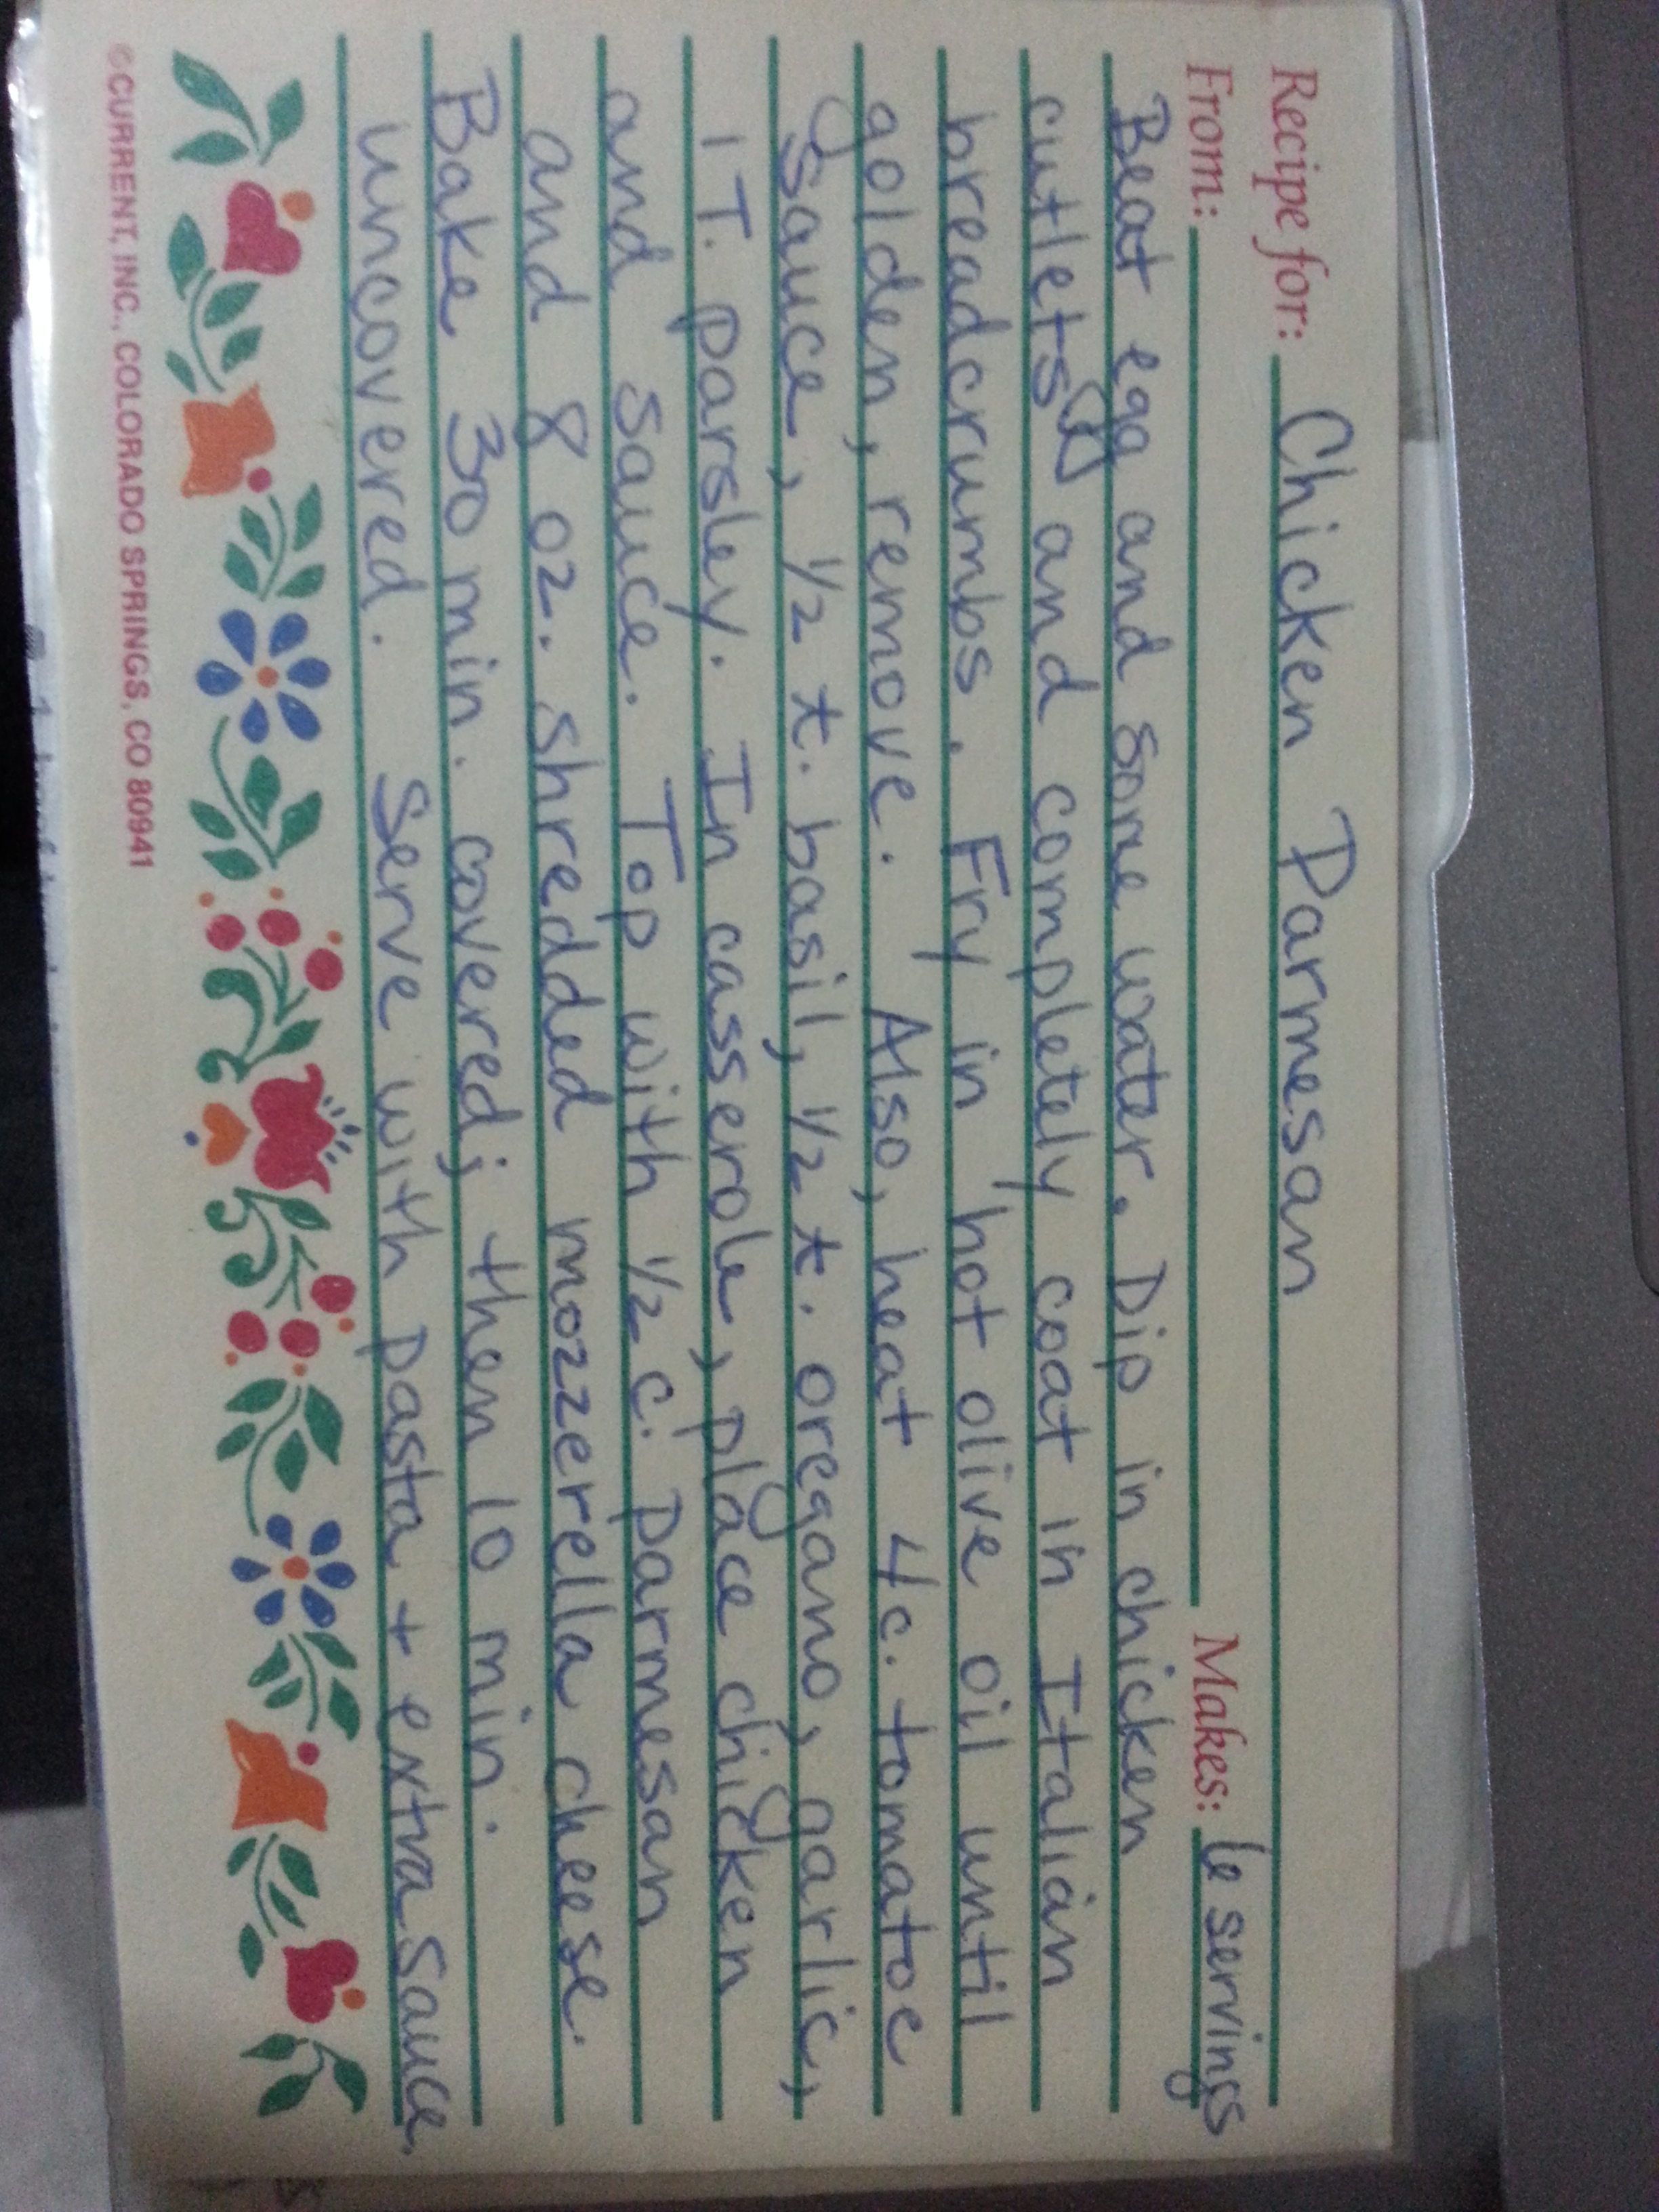 Recipe for: Chicken Parmesan
From: Makes: 6 servings
Beat egg and some water. Dip in chicken
cutlets and completely coat in Italian
breadcrumbs. Fry in hot olive oil until
golden, remove. Also, heat 4c. tomatoe
sauce, 1/2 t. basil, 1/2 t. oregano, garlic,
1 T. parsley. In casserole, place chicken
and sauce. Top with 1/2 c. parmesan
and 8 oz. shredded mozzerella cheese.
Bake 30 min. covered; then 10 min.
uncovered. Serve with pasta + extra sauce.
©CURRENT, INC., COLORADO SPRINGS, CO 80941